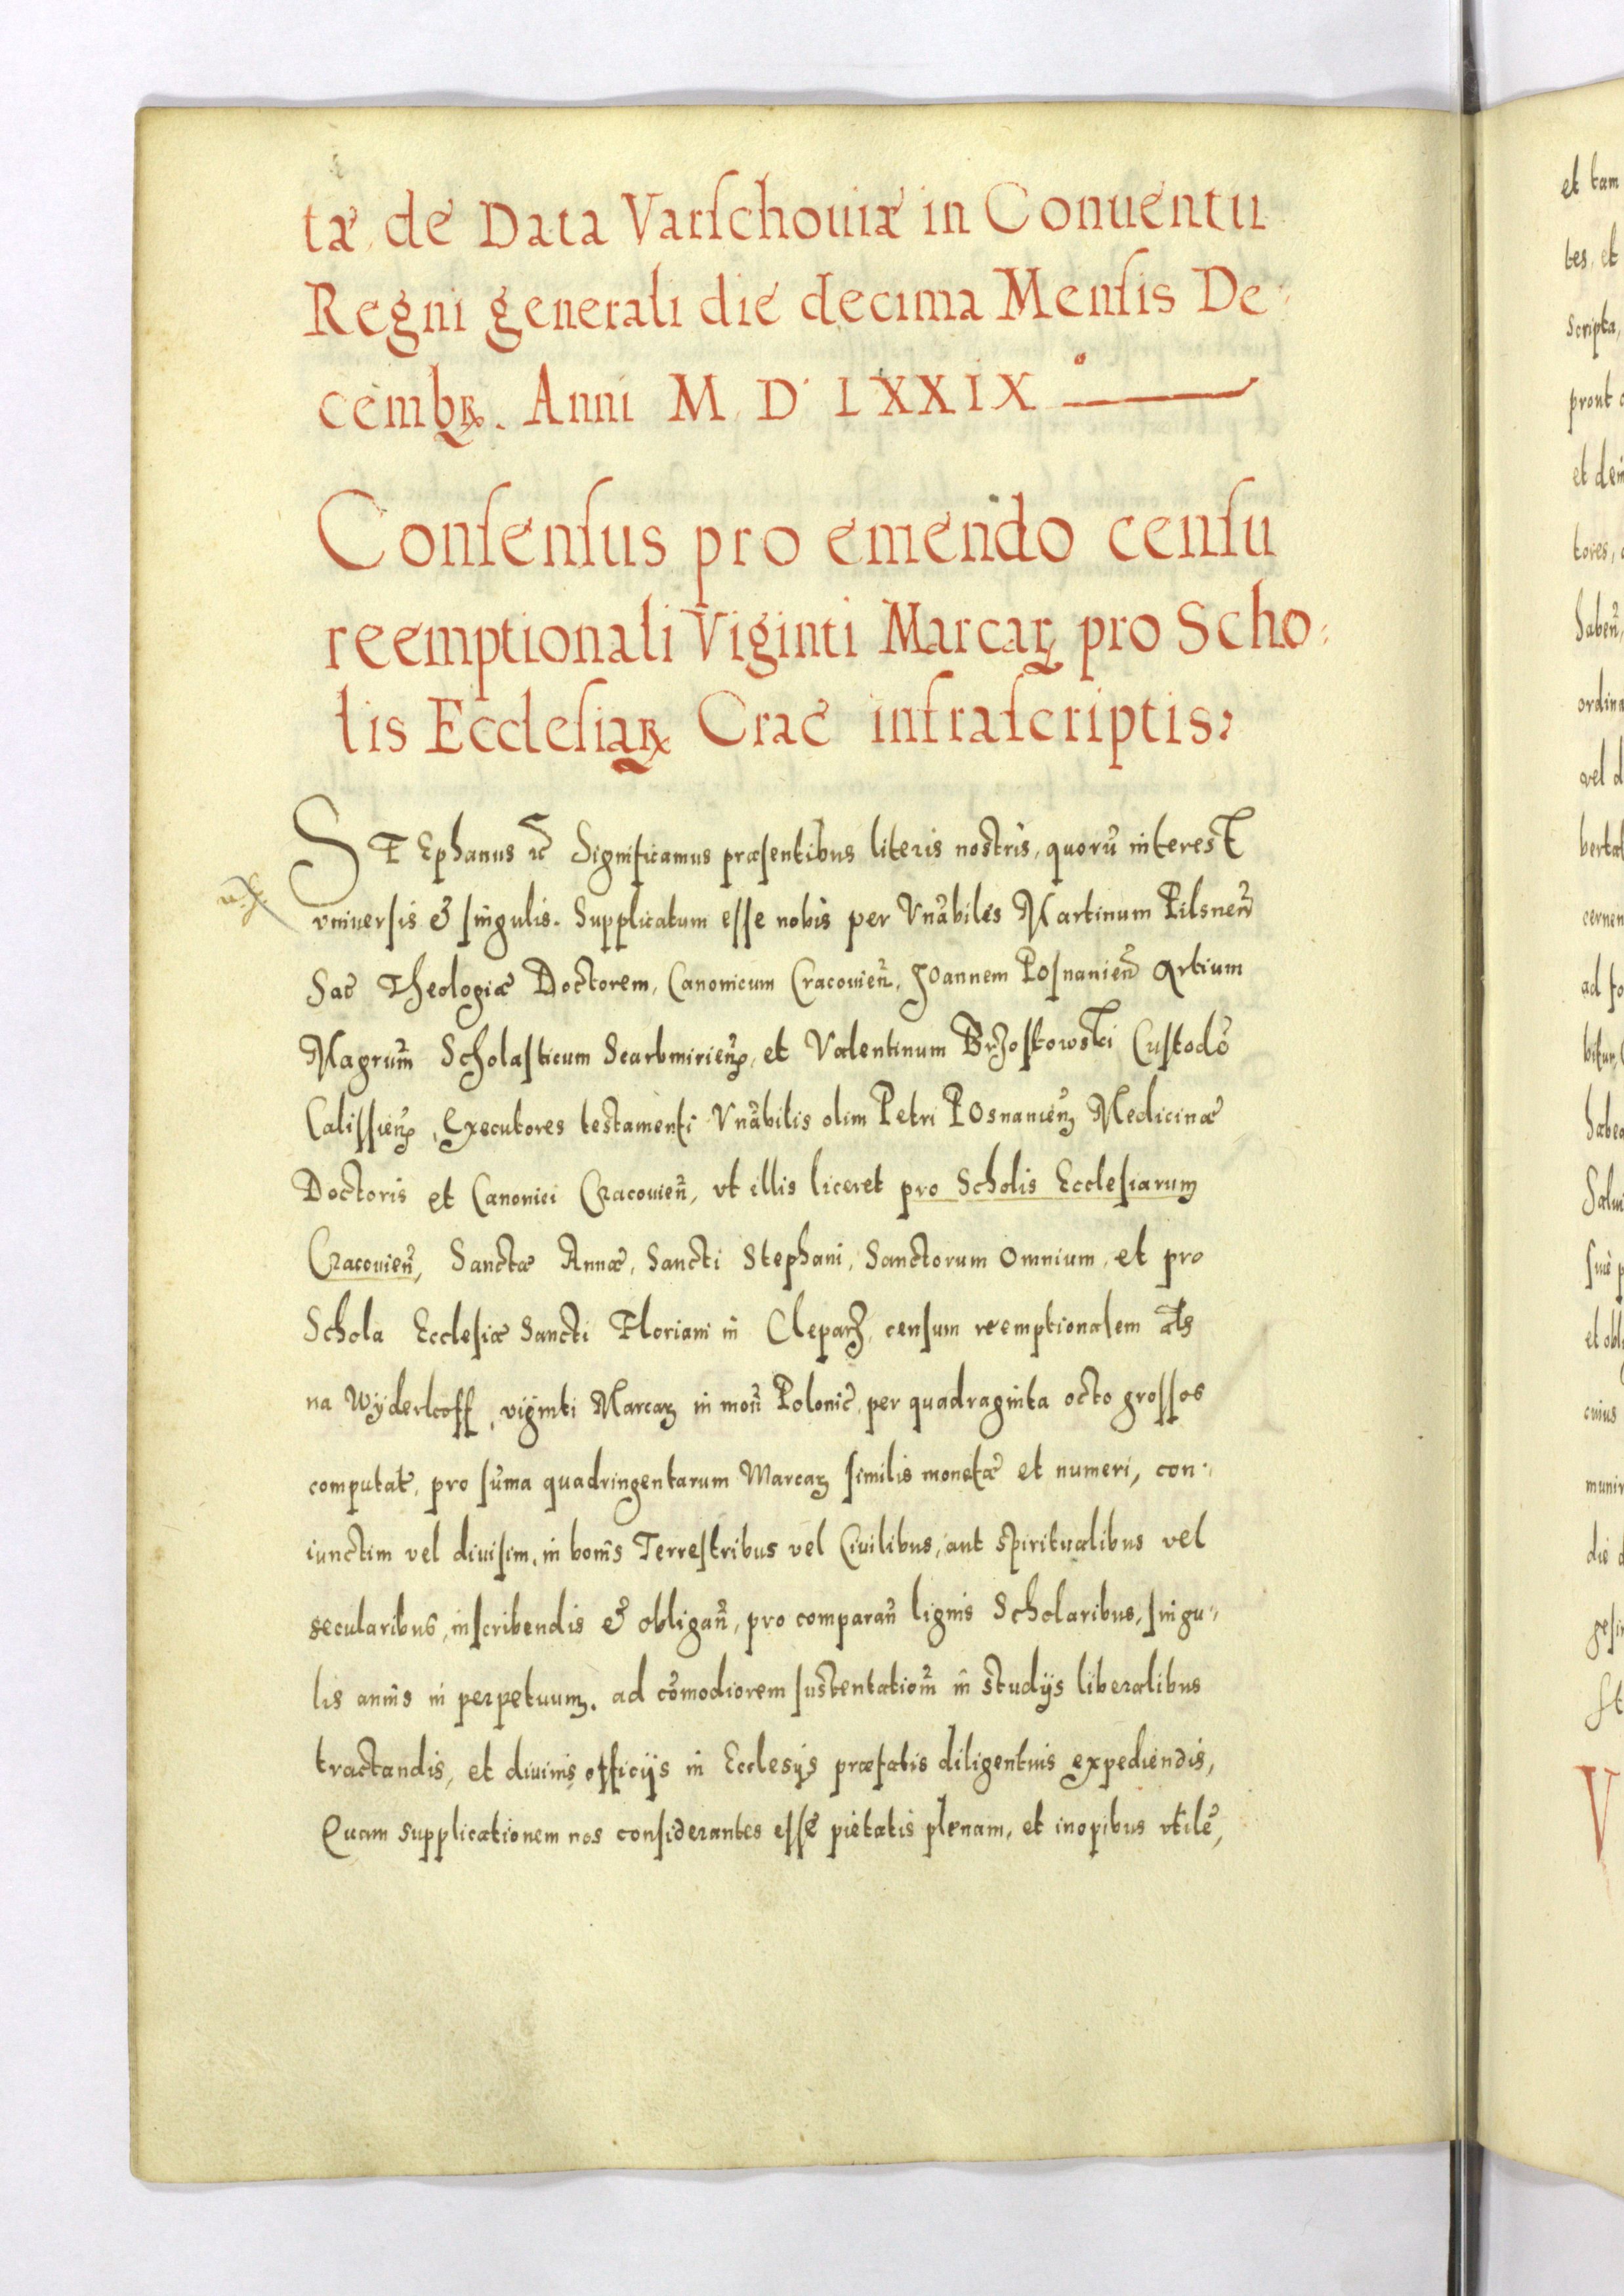 tæ de Data Varſchouiæ in Conuentu
Regni generali die decima Menſis De:
cembꝶ. Anni M D LXXIXº
Conſenſus pro emendo cenſu
reemptionali Viginti Marcaꝝ pro Scho:
lis Eccleſiaꝝ Crac̃ infraſcriptis,
STEphanus ꝛc̃ Significamus præſentibus literis nostris, quorũ interest
vniuerſis & ſingulis. Supplicatum eſſe nobis per Vnãbiles Martinum Pilsneñ
Sac̃ Theologiæ Doctorem, Canonicum Cracouieñ, Joannem Poſnanieñ Artium
Magrum̃ Scholaſticum Scarbmirieñ, et Valentinum Brzoſkowſki Cuſtodẽ
Caliſſieñ, Executores testamenti Vnãbilis olim Petri Posnanieñ Medicinæ
Doctoris et Canonici Cracouieñ, vt illis liceret pro Scholis Eccleſiarum
Cracouieñ, Sanctæ Annæ, Sancti Stephani, Sanctorum Omnium, et pro
Schola Eccleſiæ Sancti Floriani in Cleparz, cenſum reemptionalem als
na Wyderkoff, viginti Marcaꝝ in moñ Polonic̃, per quadraginta octo groſſos
computat̃, pro ſũma quadringentarum Marcaꝝ ſimilis monetæ et numeri, con:
iunctim vel diuiſim, in bonis Terreſtribus vel Ciuilibus, aut Spiritualibus vel
secularibus, inſcribendis & obligañ, pro comparañ lignis Scholaribus, ſingu:
lis annis in perpetuum, ad cõmodiorem ſustentatiom̃ in studijs liberalibus
tractandis, et diuinis officijs in Eccleſijs præfatis diligentius expediendis,
Quam supplicationem nos conſiderantes eſſe pietatis plenam, et inopibus vtilẽ,
et tam
tes, et
Scripta,
prout
ordina
vel d
cernen
ad fo
cuius
munir
V